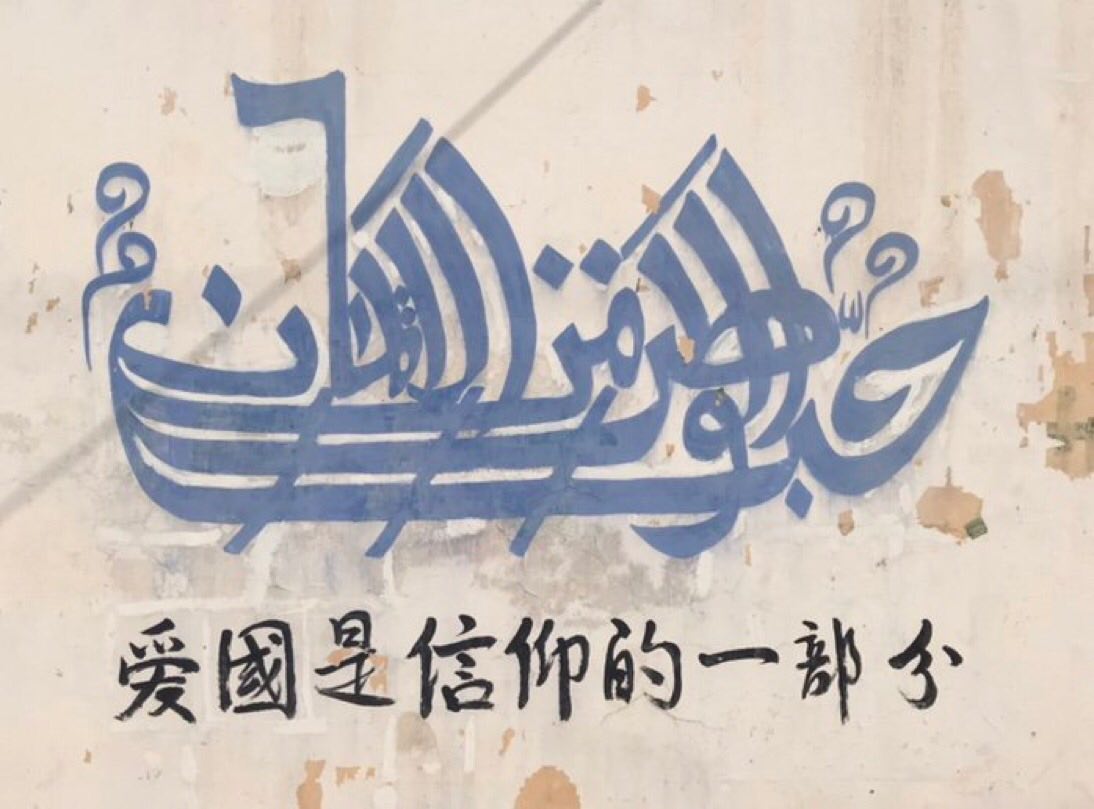 حب الوطن من الإيمان
爱國是信仰的一部分